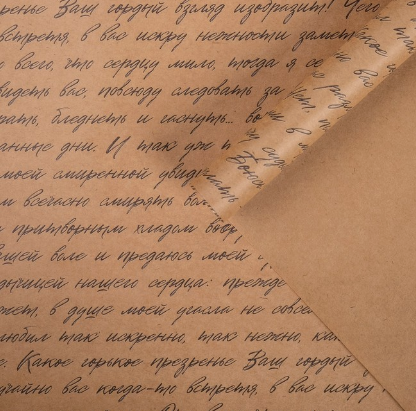 зренье Ваш гордый взгляд изобразит! Чего
встретя, в вас искру нежности замет
всего, что сердцу мило, тогда я се
видеть вас, повсюду следовать за
рать, бледнеть и гаснуть... во
анные дни. И так уж
моей смиренной увид
м всечасно смирять
притворным хладом воор
вашей воле и предаюсь моей
дычицей нашего сердца: прежде
жет, в душе моей угасла не совсе
любил так искренно, так нежно, как
с. Какое горькое презренье Ваш гордый
учайно вас когда-то встретя, в вас искру